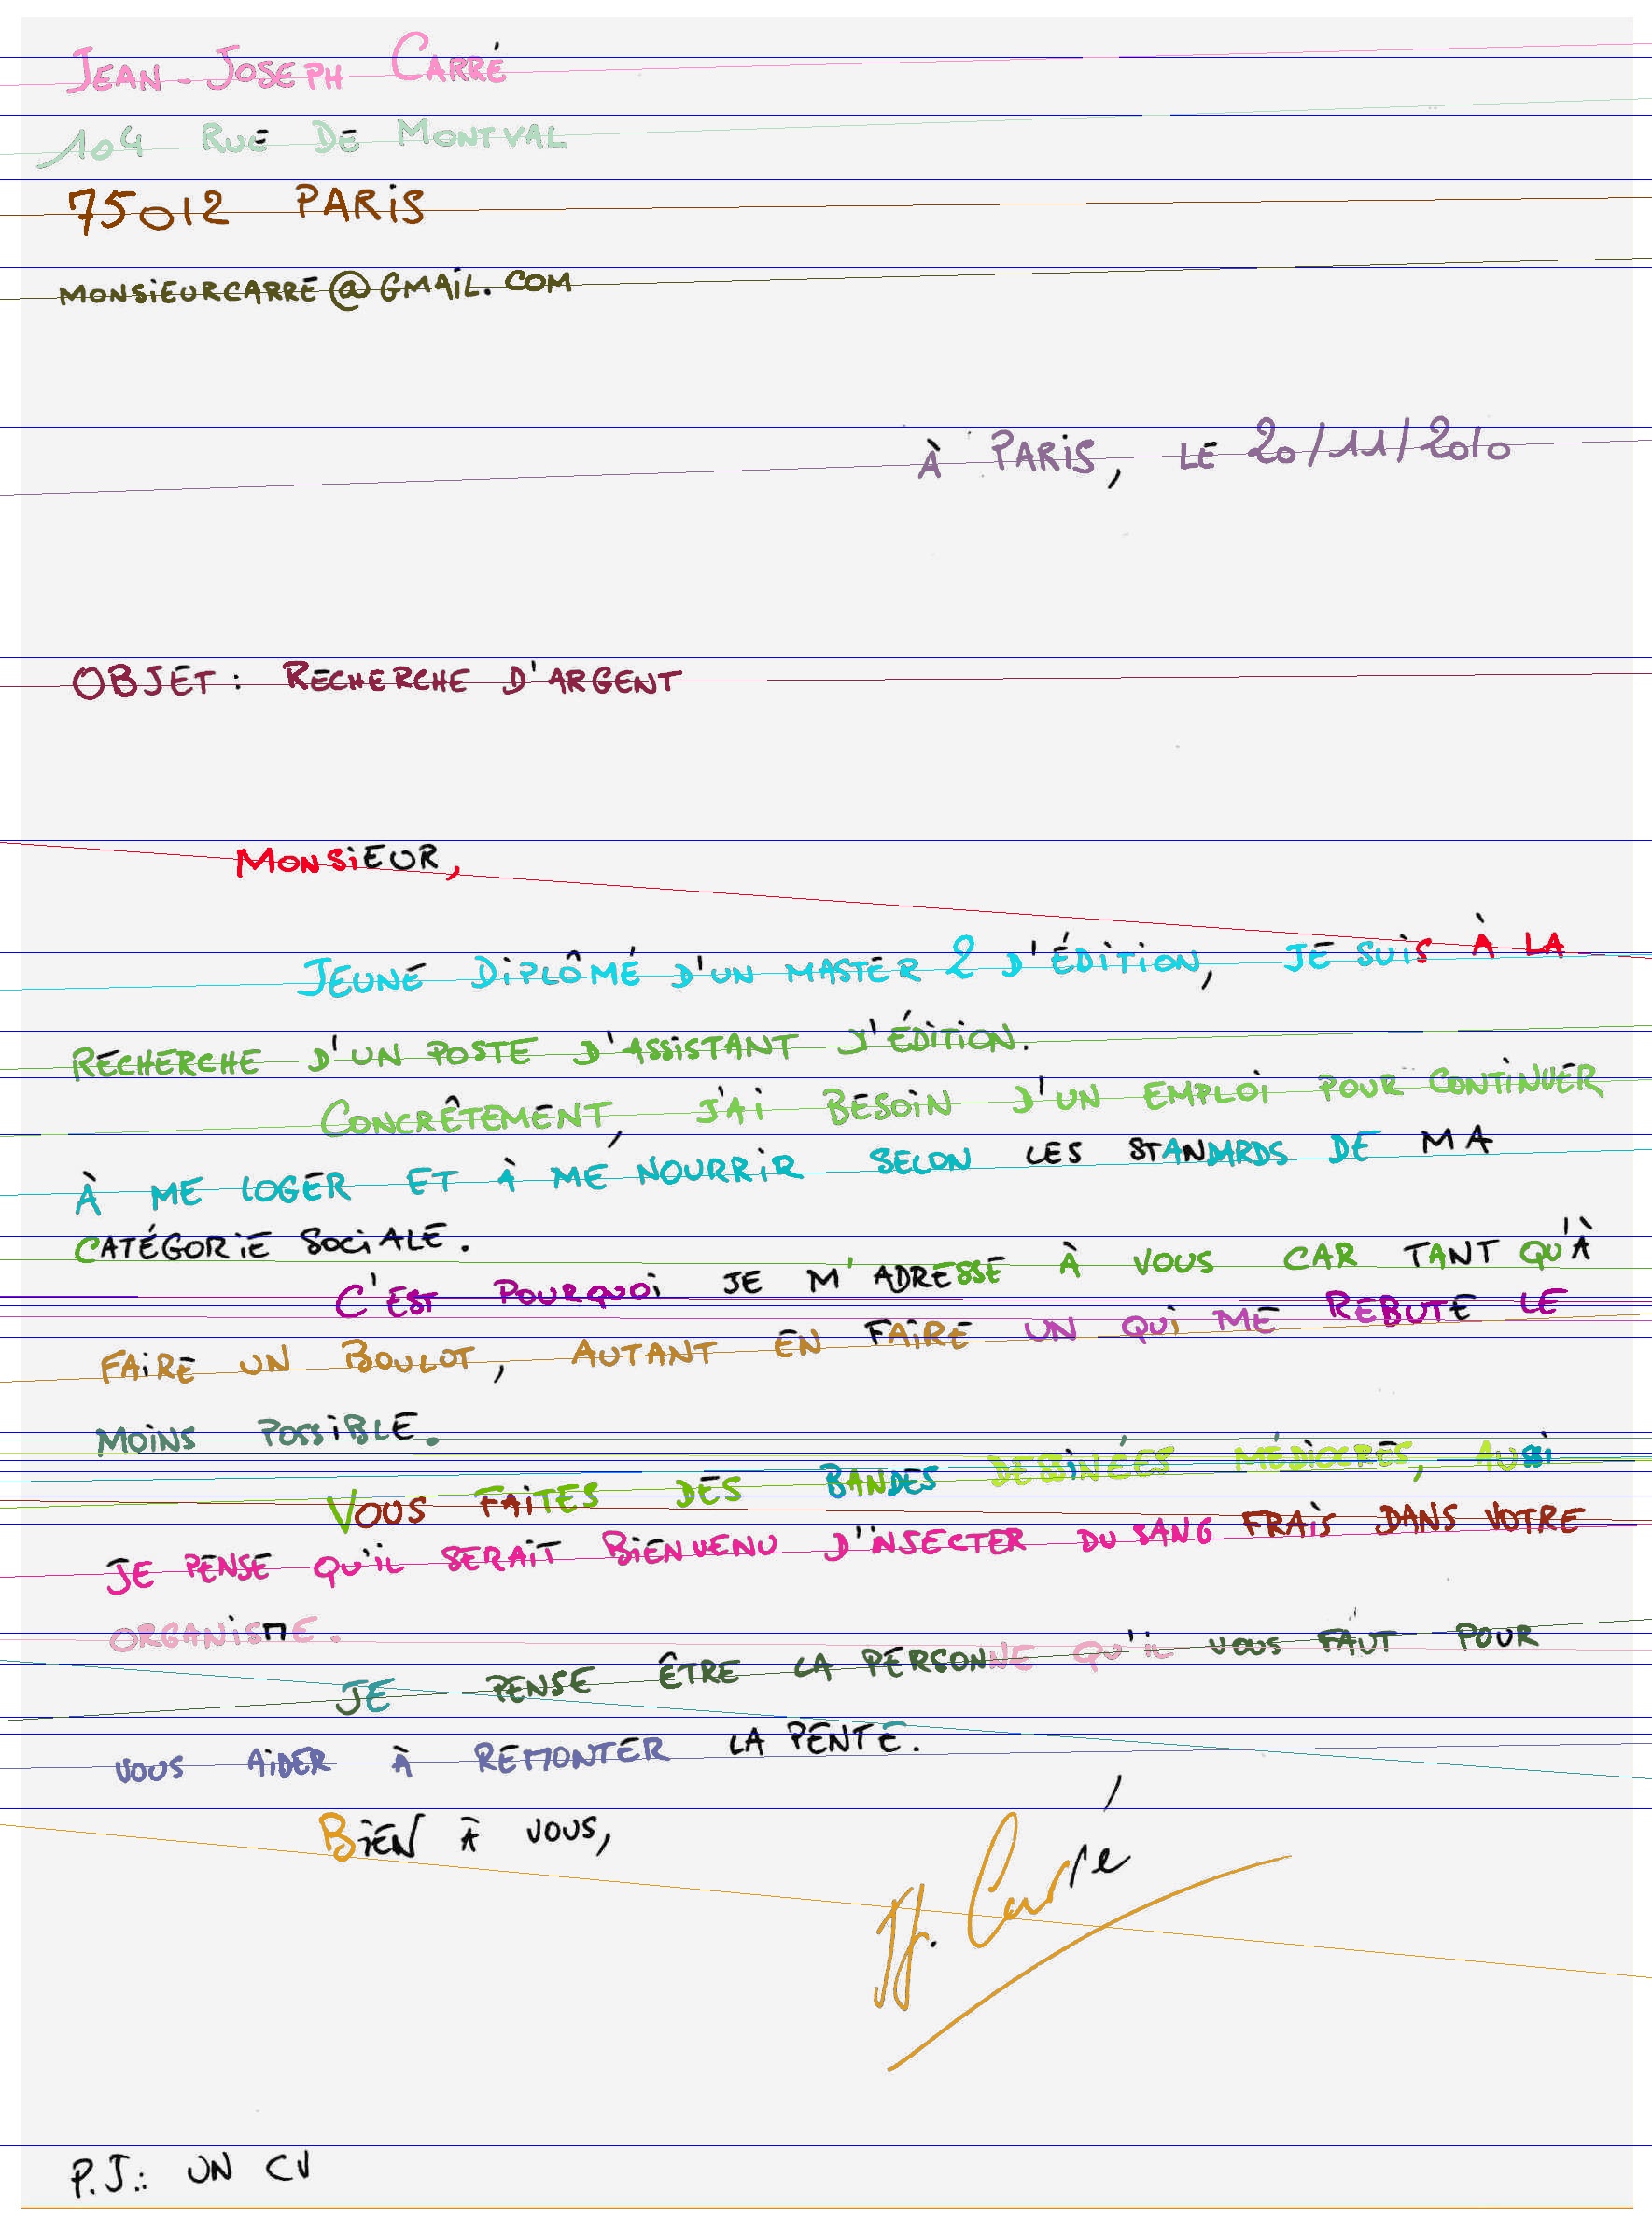 JEAN-JOSEPH CARRÉ
104 RUE DE MONTVAL
75012 PARIS
MONSIEURCARRE@GMAIL.COM
À PARIS, LE 20/11/2010
OBJET : RECHERCHE D'ARGENT
MONSIEUR,
JEUNE DIPLÔMÉ D'UN MASTER 2 D'ÉDITION, JE SUIS À LA
RECHERCHE D'UN POSTE D'ASSISTANT D'ÉDITION.
CONCRÊTEMENT, J'AI BESOIN D'UN EMPLOI POUR CONTINUER
À ME LOGER ET À ME NOURRIR SELON LES STANDARDS DE MA
CATÉGORIE SOCIALE.
C'EST POURQUOI JE M'ADRESSE À VOUS CAR TANT QU'À
FAIRE UN BOULOT, AUTANT EN FAIRE UN QUI ME REBUTE LE
MOINS POSSIBLE.
VOUS FAITES DES BANDES DESSINÉES MÉDIOCRES, AUSSI
JE PENSE QU'IL SERAIT BIENVENU D'INSECTER DU SANG FRAIS DANS VOTRE
ORGANISME.
JE PENSE ÊTRE LA PERSONNE QU'IL VOUS FAUT POUR
VOUS AIDER À REMONTER LA PENTE.
BIEN À VOUS,
JJ. Carré
P.J.: UN CV